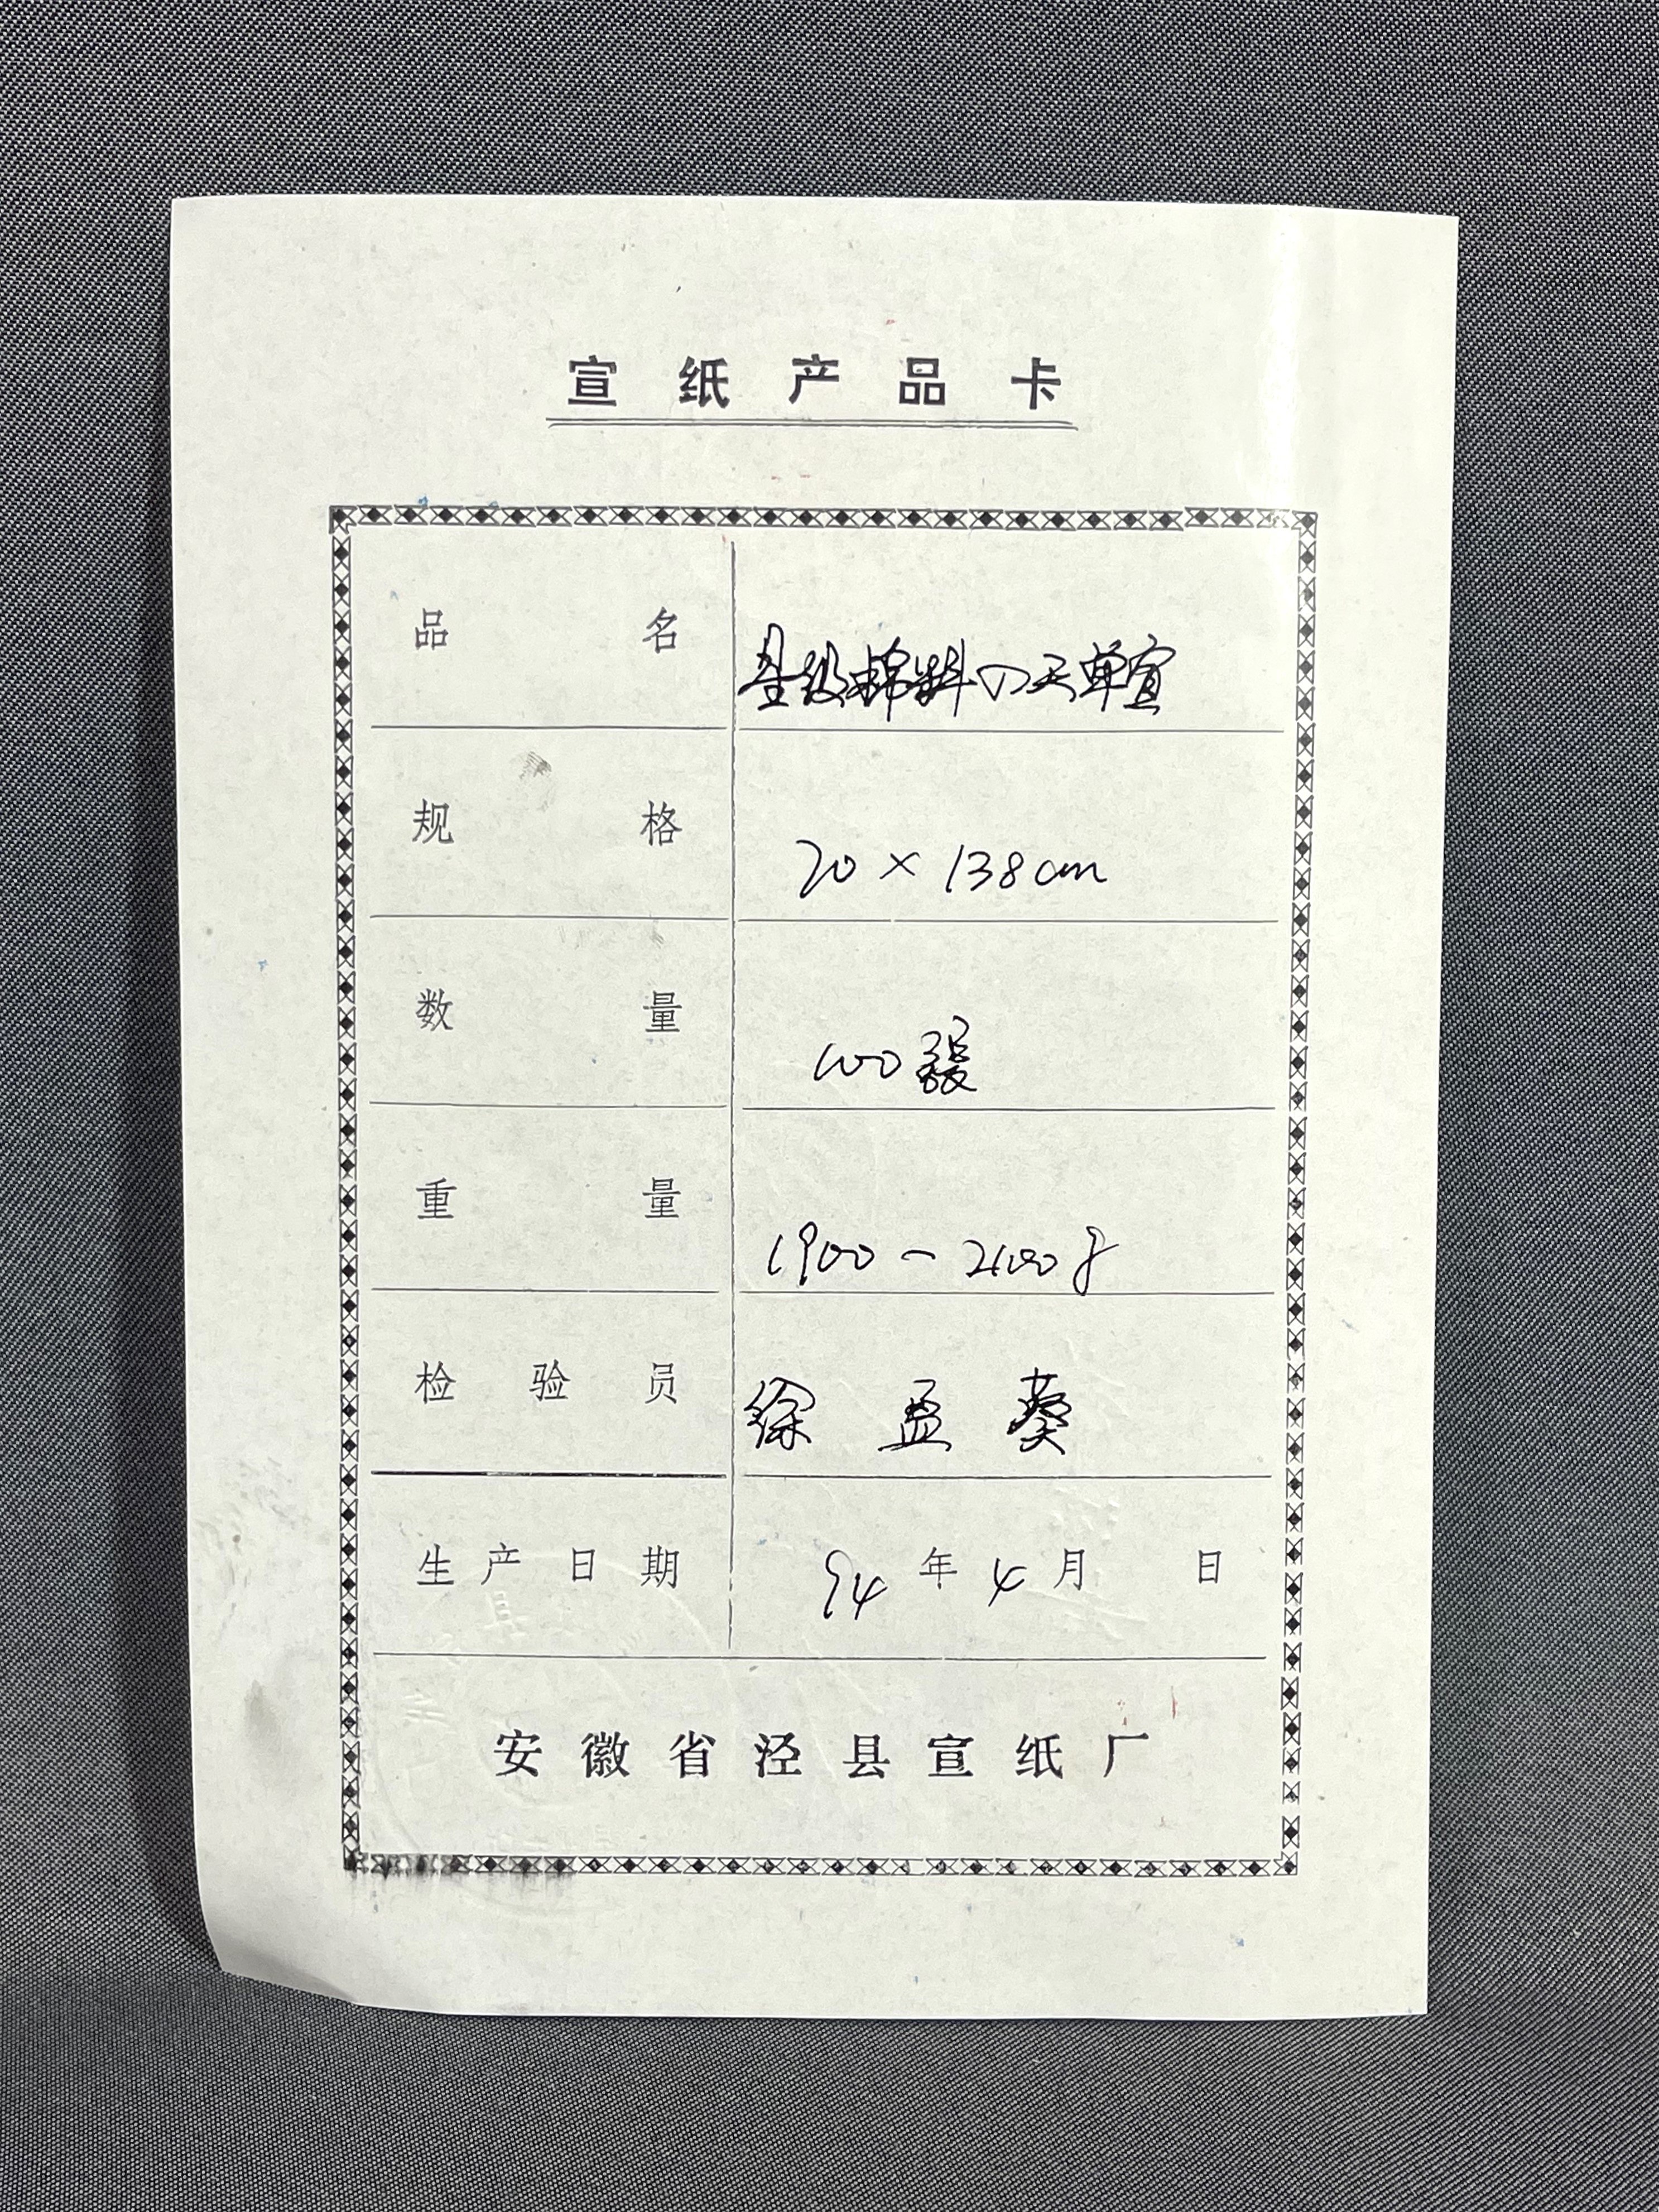 宣纸产品卡
品名 级棉料四尺单宣
规格 70×138cm
数量 100張
重量 1900－2100g
检验员 徐孟葵
生产日期 94年4月 日
安徽省泾县宣纸厂